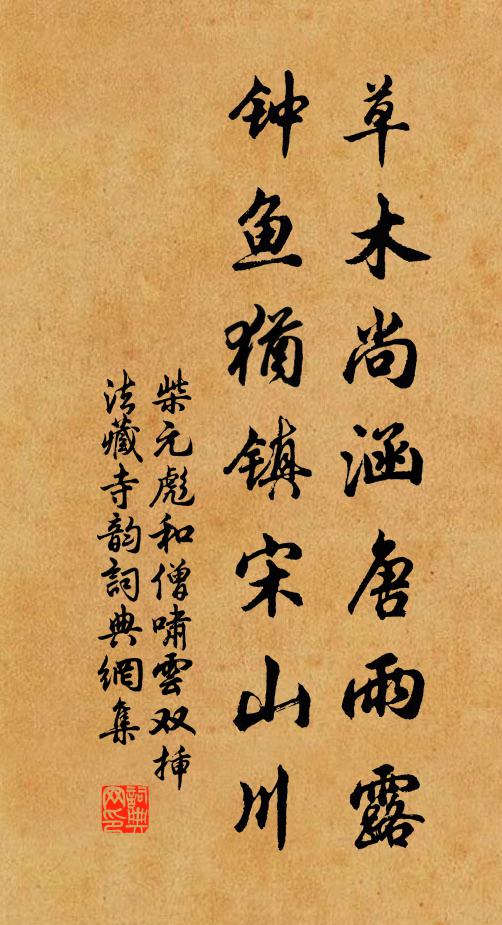 草木尚涵唐雨露
钟鱼犹镇宋山川
柴元彪和僧啸雲双挿
法藏寺韵詞典網集
詞典網印